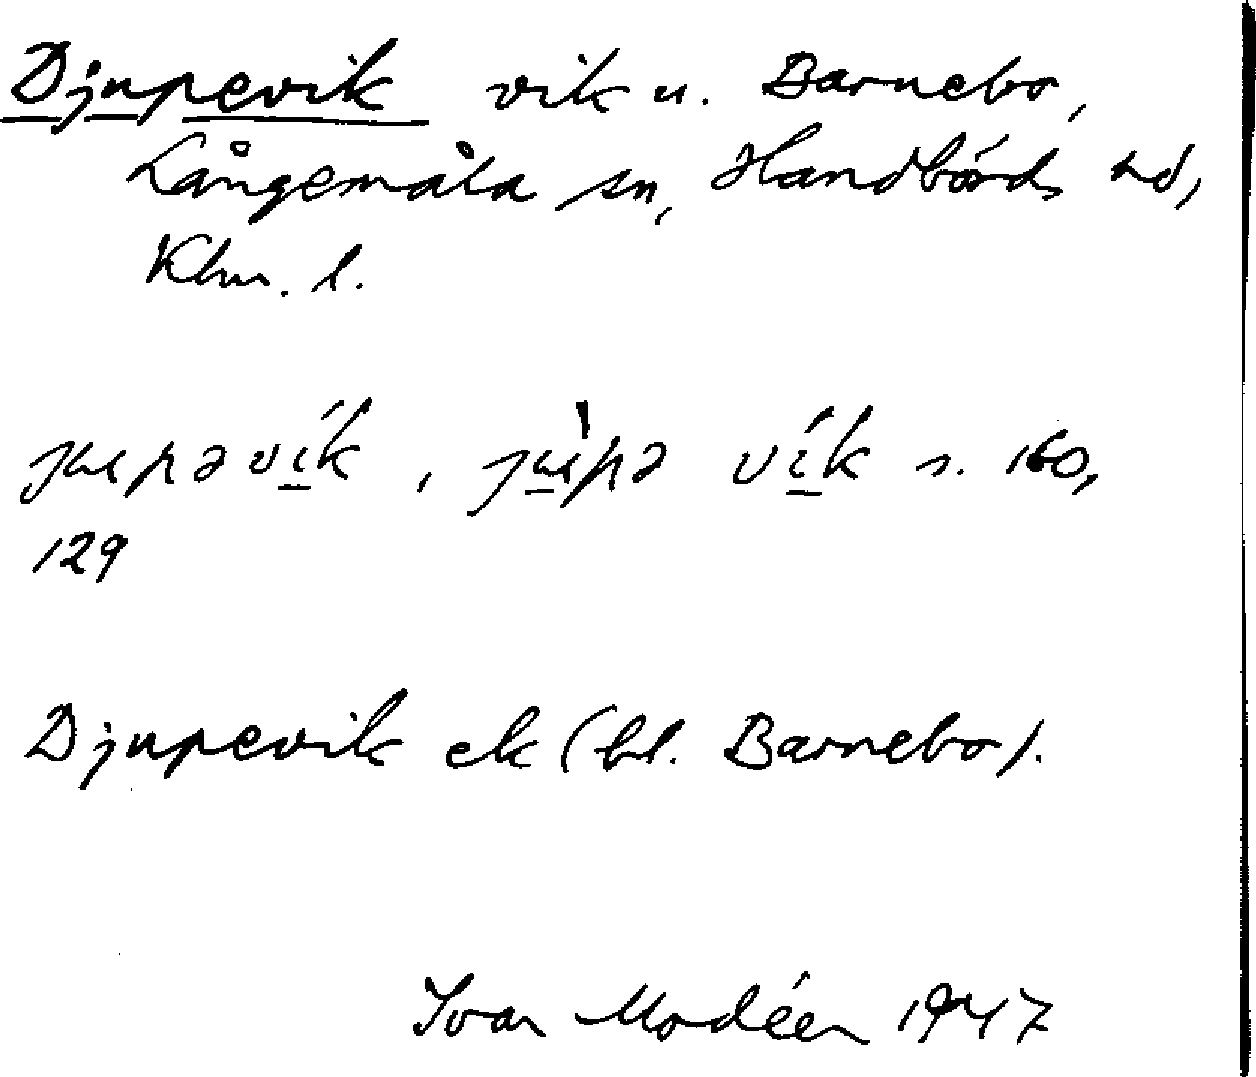 Djupevik vik u. Barnebo,
Långemåla sn, Handbörds hd,
Klm. l.
jupəvik, jùpə vík s. 160,
129
Djupevik ek (bl. Barnebo).
Ivar Modéer 1947